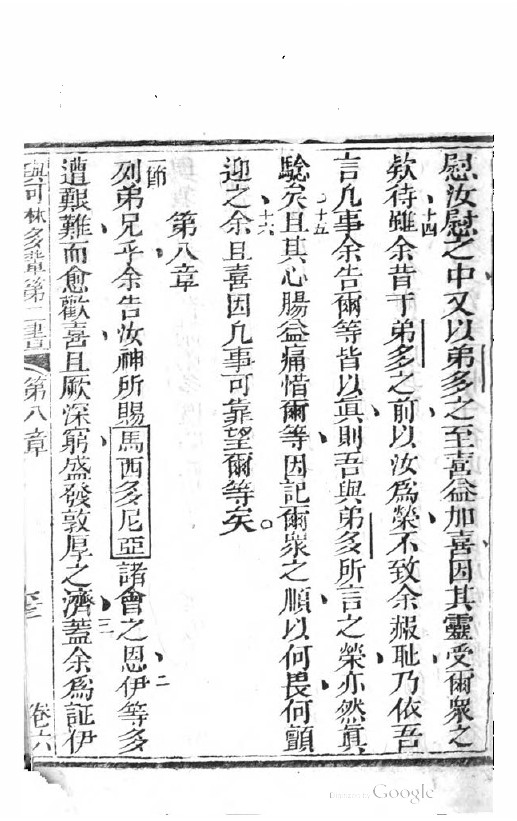 慰汝慰之中又以弟多之至喜益加喜因其靈受爾衆之
十四
欸待雖余昔于弟多之前以汝爲榮不致余報耻乃依吾
言凢事余告爾等皆以眞則吾與弟多所言之榮亦然眞
十五
騐矣且其心腸益痛惜爾等因記爾衆之順以何畏何顫
十六
迎之余且喜因凢事可靠望爾等矣。
第八章
一節
列弟兄乎余告汝神所賜馬西多尼亞諸會之恩伊等多
二
遭艱難而愈歡喜且厥深窮盛發敦厚之濟蓋余爲証伊
三
與可林多輩第二書 第八章 卷六
Digitized by Google